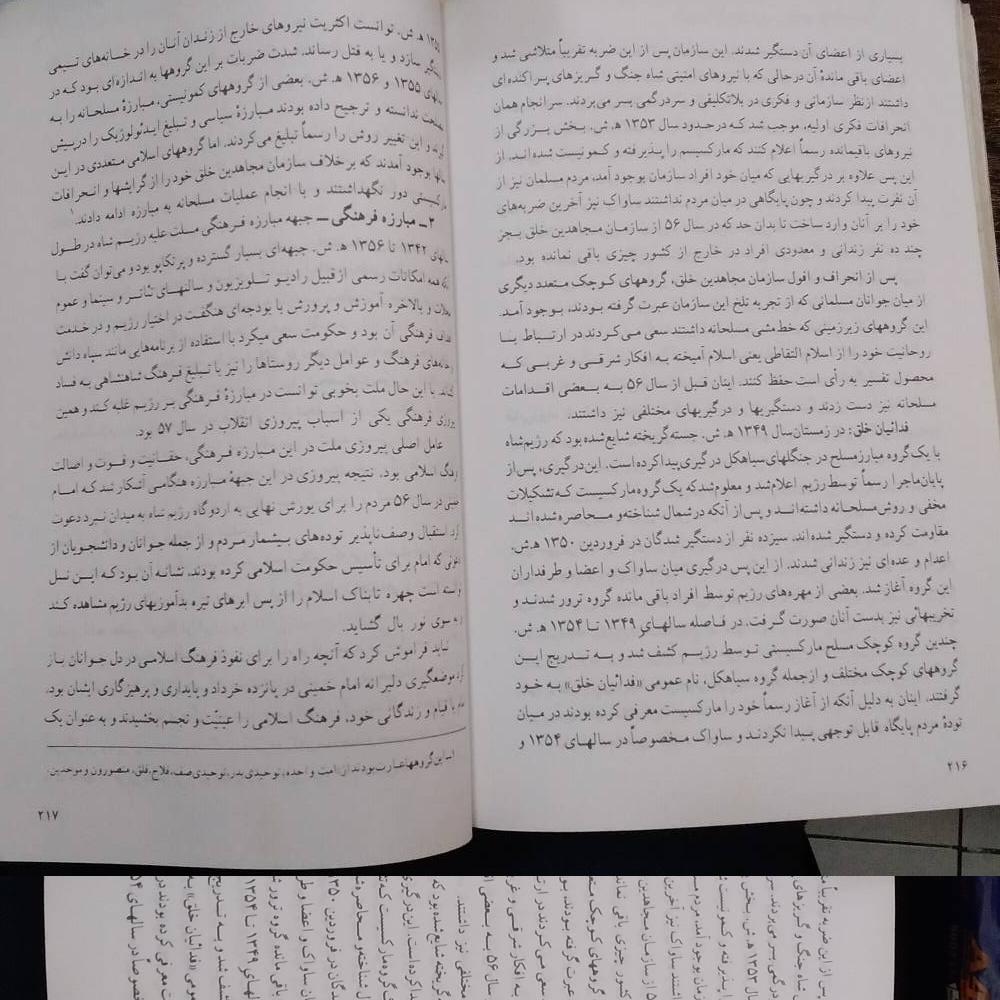 بسیاری از اعضای آن دستگیر شدند. این سازمان پس از این ضربه تقریباً متلاشی شد و
اعضای باقی ماندهٔ آن درحالی که با نیروهای امنیتی شاه جنگ و گریزهای پراکنده‌ای
داشتند ازنظر سازمانی و فکری در بلاتکلیفی و سردرگمی بسر می‌بردند. سرانجام همان
انحرافات فکری اولیه، موجب شد که درحدود سال ۱۳۵۳ ه‍. ش. بخش بزرگی از
نیروهای باقیمانده رسماً اعلام کنند که مارکسیسم را پذیرفته و کمونیست شده‌اند. از
این پس علاوه بر درگیریهایی که میان خود افراد سازمان بوجود آمد، مردم مسلمان نیز از
آن نفرت پیدا کردند و چون پایگاهی در میان مردم نداشتند ساواک نیز آخرین ضربه‌های
خود را بر آنان وارد ساخت تا بدان حد که در سال ۵۶ از سازمان مجاهدین خلق بجز
چند ده نفر زندانی و معدودی افراد در خارج از کشور چیزی باقی نمانده بود.
پس از انحراف و افول سازمان مجاهدین خلق، گروههای کوچک متعدد دیگری
از میان جوانان مسلمانی که از تجربه تلخ این سازمان عبرت گرفته بودند، بوجود آمد.
این گروههای زیرزمینی که خط‌مشی مسلحانه داشتند سعی می‌کردند در ارتباط با
روحانیت خود را از اسلام التقاطی یعنی اسلام آمیخته به افکار شرقی و غربی که
محصول تفسیر به رأی است حفظ کنند. اینان قبل از سال ۵۶ به بعضی اقدامات
مسلحانه نیز دست زدند و دستگیریها و درگیریهای مختلفی نیز داشتند.
فدائیان خلق: در زمستان سال ۱۳۴۹ ه‍. ش. جسته‌گریخته شایع شده بود که رژیم شاه
با یک گروه مبارز مسلح در جنگلهای سیاهکل درگیری پیدا کرده است. این درگیری، پس از
پایان ماجرا رسماً توسط رژیم اعلام شد و معلوم شد که یک گروه مارکسیست که تشکیلات
مخفی و روش مسلحانه داشته‌اند و پس از آنکه درشمال شناخته و محاصره شده‌اند
مقاومت کرده و دستگیر شده‌اند. سیزده نفر از دستگیر شدگان در فروردین ۱۳۵۰ ه‍.ش.
اعدام و عده‌ای نیز زندانی شدند. از این پس درگیری میان ساواک و اعضا و طرفداران
این گروه آغاز شد. بعضی از مهره‌های رژیم توسط افراد باقی مانده گروه ترور شدند و
تخریبهائی نیز بدست آنان صورت گرفت. در فاصله سالهای ۱۳۴۹ تا ۱۳۵۴ ه‍. ش.
چندین گروه کوچک مسلح مارکسیستی توسط رژیم کشف شد و به تدریج این
گروههای کوچک مختلف و ازجمله گروه سیاهکل، نام عمومی «فدائیان خلق» به خود
گرفتند. اینان به دلیل آنکه از آغاز رسماً خود را مارکسیست معرفی کرده بودند در میان
تودهٔ مردم پایگاه قابل توجهی پیدا نکردند و ساواک مخصوصاً در سالهای ۱۳۵۴ و
۲۱۶
ه‍. ش. توانست اکثریت نیروهای خارج از زندان آنان را در خانه‌های تیمی
سازد و یا به قتل رساند. شدت ضربات بر این گروهها به اندازه‌ای بود که در
۱۳۵۵ و ۱۳۵۶ ه‍. ش. بعضی از گروههای کمونیستی، مبارزهٔ مسلحانه را به
ندانسته و ترجیح داده بودند مبارزهٔ سیاسی و تبلیغ ایدئولوژیک را درپیش
و این تغییر روش را رسماً تبلیغ می‌کردند. اما گروههای اسلامی متعددی در این
بوجود آمدند که برخلاف سازمان مجاهدین خلق خود را از گرایشها و انحرافات
دور نگهداشتند و با انجام عملیات مسلحانه به مبارزه ادامه دادند.۱
۳ــ مبارزه فرهنگی ــ جبهه مبارزه فرهنگی ملت علیه رژیم شاه در طول
۱۳۴۲ تا ۱۳۵۶ ه‍. ش. جبهه‌ای بسیار گسترده و پرتکاپو بود و می‌توان گفت با
همه امکانات رسمی ازقبیل رادیو تلویزیون و سالنهای تئاتر و سینما و عموم
و بالاخره آموزش و پرورش با بودجه‌ای هنگفت در اختیار رژیم و در خدمت
فرهنگی آن بود و حکومت سعی میکرد با استفاده از برنامه‌هایی مانند سپاه دانش
فرهنگ و عوامل دیگر روستاها را نیز با تبلیغ فرهنگ شاهنشاهی به فساد
با این حال ملت بخوبی توانست در مبارزهٔ فرهنگی بر رژیم غلبه کند و همین
فرهنگی یکی از اسباب پیروزی انقلاب در سال ۵۷ بود.
عامل اصلی پیروزی ملت در این مبارزه فرهنگی، حقانیت و قوت و اصالت
اسلامی بود. نتیجه پیروزی در این جبههٔ مبارزه هنگامی آشکار شد که امام
در سال ۵۶ مردم را برای یورش نهایی به اردوگاه رژیم شاه به میدان نبرد دعوت
استقبال وصف‌ناپذیر توده‌های بیشمار مردم و از جمله جوانان و دانشجویان از
که امام برای تأسیس حکومت اسلامی کرده بودند، نشانه آن بود که این نسل
است چهره تابناک اسلام را از پس ابرهای تیره بدآموزیهای رژیم مشاهده کند
سوی نور بال گشاید.
نباید فراموش کرد که آنچه راه را برای نفوذ فرهنگ اسلامی در دل جوانان باز
موضعگیری دلیرانه امام خمینی در پانزده خرداد و پایداری و پرهیزگاری ایشان بود.
با قیام و زندگانی خود، فرهنگ اسلامی را عینیّت و تجسم بخشیدند و به عنوان یک
۱ــ این گروهها عبارت بودند از: امت واحده، توحیدی بدر، توحیدی صف، فلاح، فلق، منصورون و موحدین.
۲۱۷